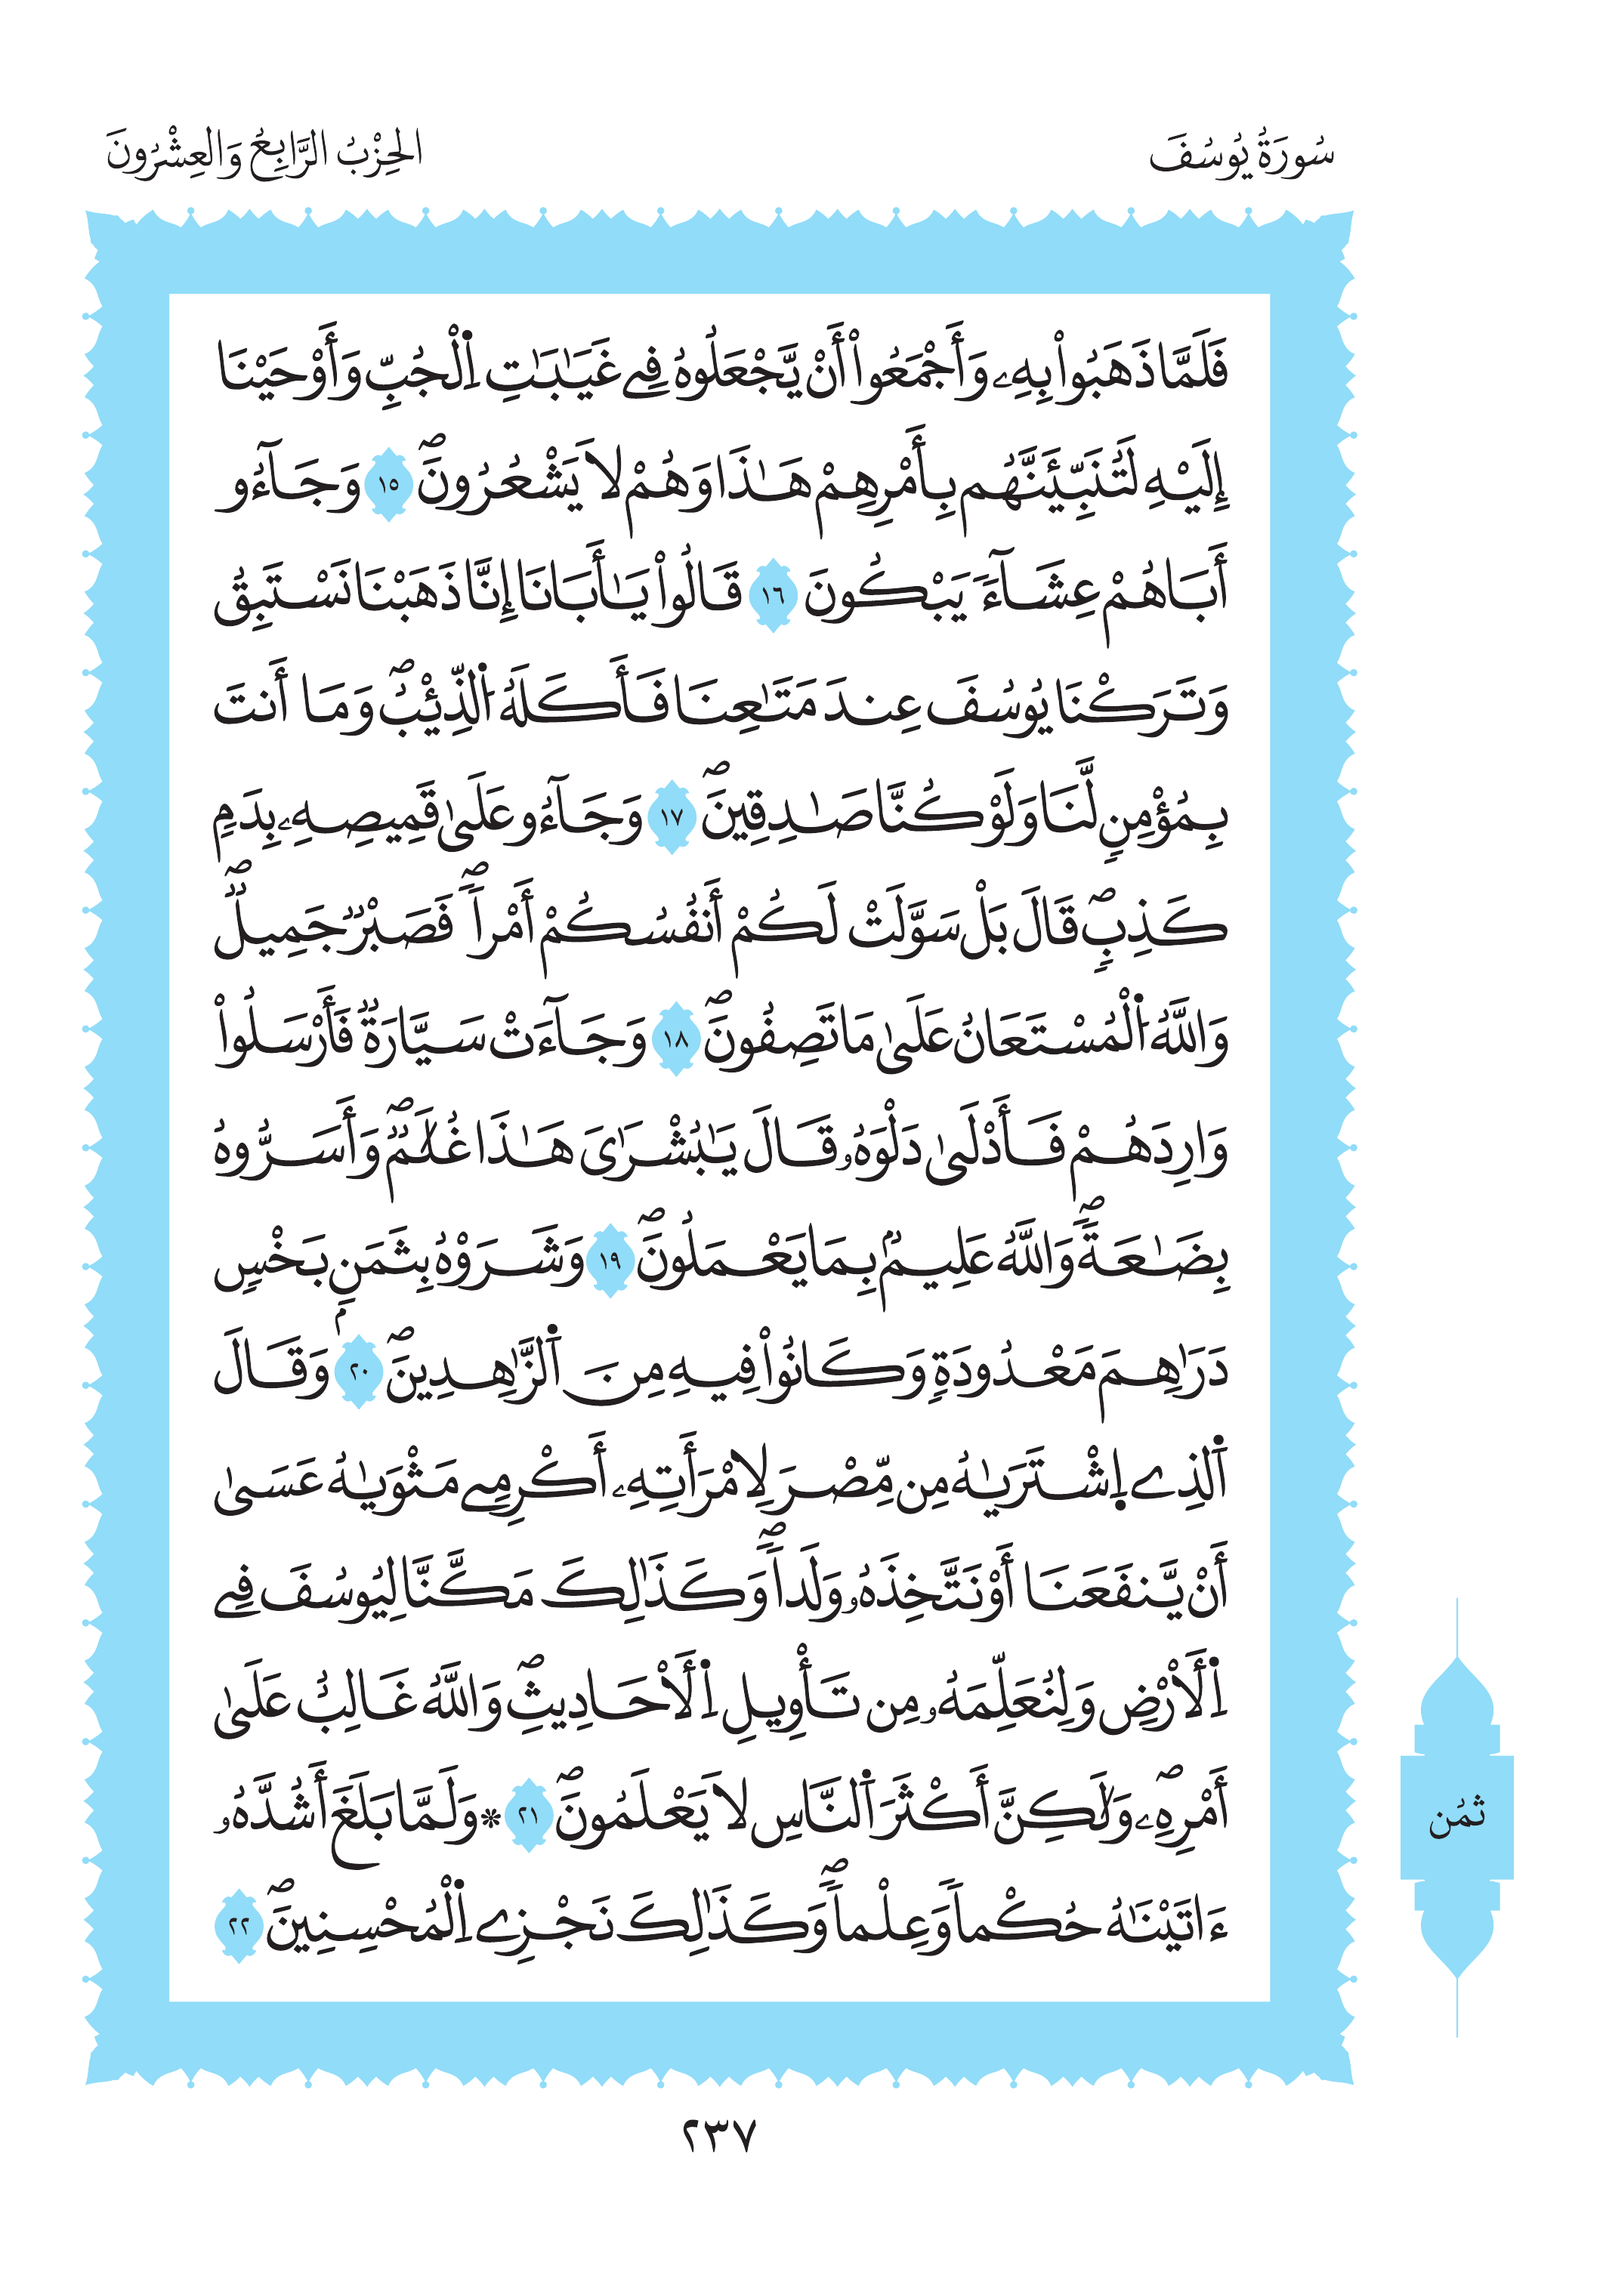 سُورَةُ يُوسُفَ
الحِزْبُ الرَّابِعُ وَالعِشْرُونَ
فَلَمَّا ذَهَبُواْ بِهِۦ وَأَجْمَعُواْ أَنْ يَّجْعَلُوهُ فِے غَيَٰبَٰتِ اِ۬لْجُبِّ وَأَوْحَيْنَا
إِلَيْهِ لَتُنَبِّئَنَّهُم بِأَمْرِهِمْ هَٰذَا وَهُمْ لَا يَشْعُرُونَۖ ١٥ وَجَآءُو
أَبَاهُمْ عِشَآءَ يَبْكُونَ ١٦ قَالُواْ يَٰأَبَانَا إِنَّا ذَهَبْنَا نَسْتَبِقُ
وَتَرَكْنَا يُوسُفَ عِندَ مَتَٰعِنَا فَأَكَلَهُ اُ۬لذِّئْبُۖ وَمَا أَنتَ
بِمُؤْمِنٖ لَّنَا وَلَوْ كُنَّا صَٰدِقِينَۖ ١٧ وَجَآءُو عَلَىٰ قَمِيصِهِۦ بِدَمٖ
كَذِبٖۖ قَالَ بَلْ سَوَّلَتْ لَكُمْ أَنفُسُكُمْ أَمْراٗۖ فَصَبْرٞ جَمِيلٞۖ
وَاللَّهُ اُ۬لْمُسْتَعَانُ عَلَىٰ مَا تَصِفُونَۖ ١٨ وَجَآءَتْ سَيَّارَةٞ فَأَرْسَلُواْ
وَارِدَهُمْ فَأَدْلَىٰ دَلْوَهُۥ قَالَ يَٰبُشْرَٰىَ هَٰذَا غُلَٰمٞۖ وَأَسَرُّوهُ
بِضَٰعَةٗۖ وَاللَّهُ عَلِيمُۢ بِمَا يَعْمَلُونَۖ ١٩ وَشَرَوْهُ بِثَمَنِۢ بَخْسٖ
دَرَٰهِمَ مَعْدُودَةٖ وَكَانُواْ فِيهِ مِنَ اَ۬لزَّٰهِدِينَۖ ٢٠ وَقَالَ
اَ۬لذِے اِ۪شْتَرَيٰهُ مِن مِّصْرَ لِامْرَأَتِهِۦ أَكْرِمِے مَثْوَيٰهُ عَسَىٰ
أَنْ يَّنفَعَنَا أَوْ نَتَّخِذَهُۥ وَلَداٗۖ وَكَذَٰلِكَ مَكَّنَّا لِيُوسُفَ فِے
اِ۬لَأَرْضِ وَلِنُعَلِّمَهُۥ مِن تَأْوِيلِ اِ۬لَأَحَادِيثِۖ وَاللَّهُ غَالِبٌ عَلَىٰ
أَمْرِهِۦۖ وَلَٰكِنَّ أَكْثَرَ اَ۬لنَّاسِ لَا يَعْلَمُونَۖ ٢١ * وَلَمَّا بَلَغَ أَشُدَّهُۥ
ءَاتَيْنَٰهُ حُكْماٗ وَعِلْماٗۖ وَكَذَٰلِكَ نَجْزِے اِ۬لْمُحْسِنِينَۖ ٢٢
ثمُن
٢٣٧